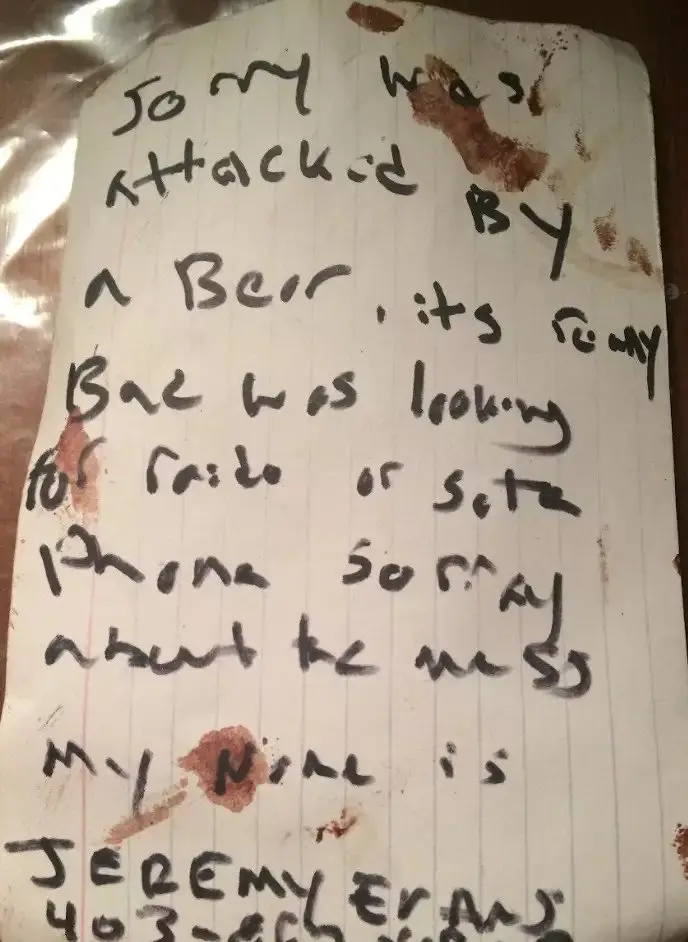 Sorry was
attacked By
a Bear. its reaily
Bad was looking
for raido or sate
Phone Sorray
about the mess
My Name is
JEREMY EVANS
403-